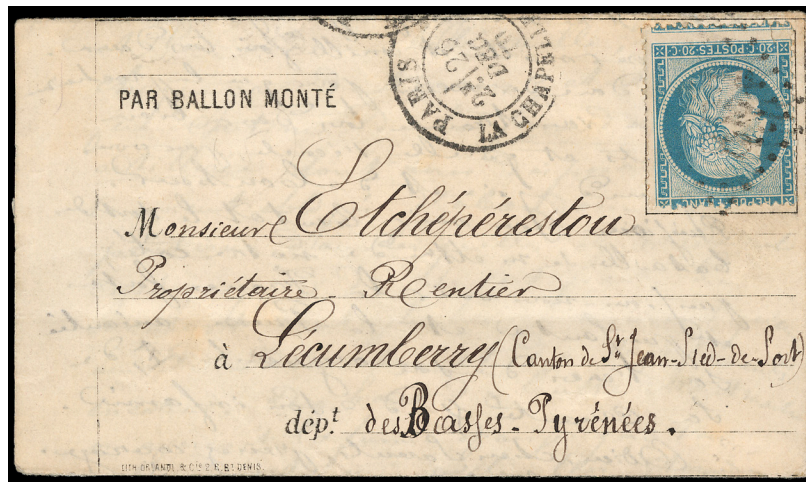 PARIS LA CHAPELLE
2E/ 26 DEC 70
20 C·POSTES·20 C
PAR BALLON MONTÉ
Monsieur Etchépérestou
Propriétaire Rentier
à Lécumberry (Canton de St Jean-Pied-de-Port)
dépt. des Basses-Pyrénées.